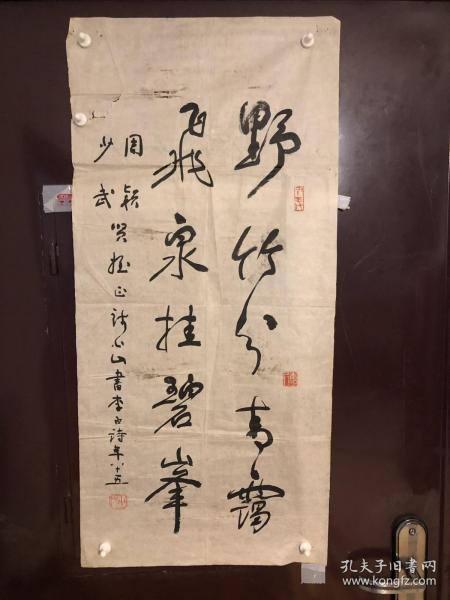 野竹分青靄
飛泉挂碧峯
周穎
少武
賢姪正 小山書李白詩年八十五
孔夫子旧书网
www.kongfz.com